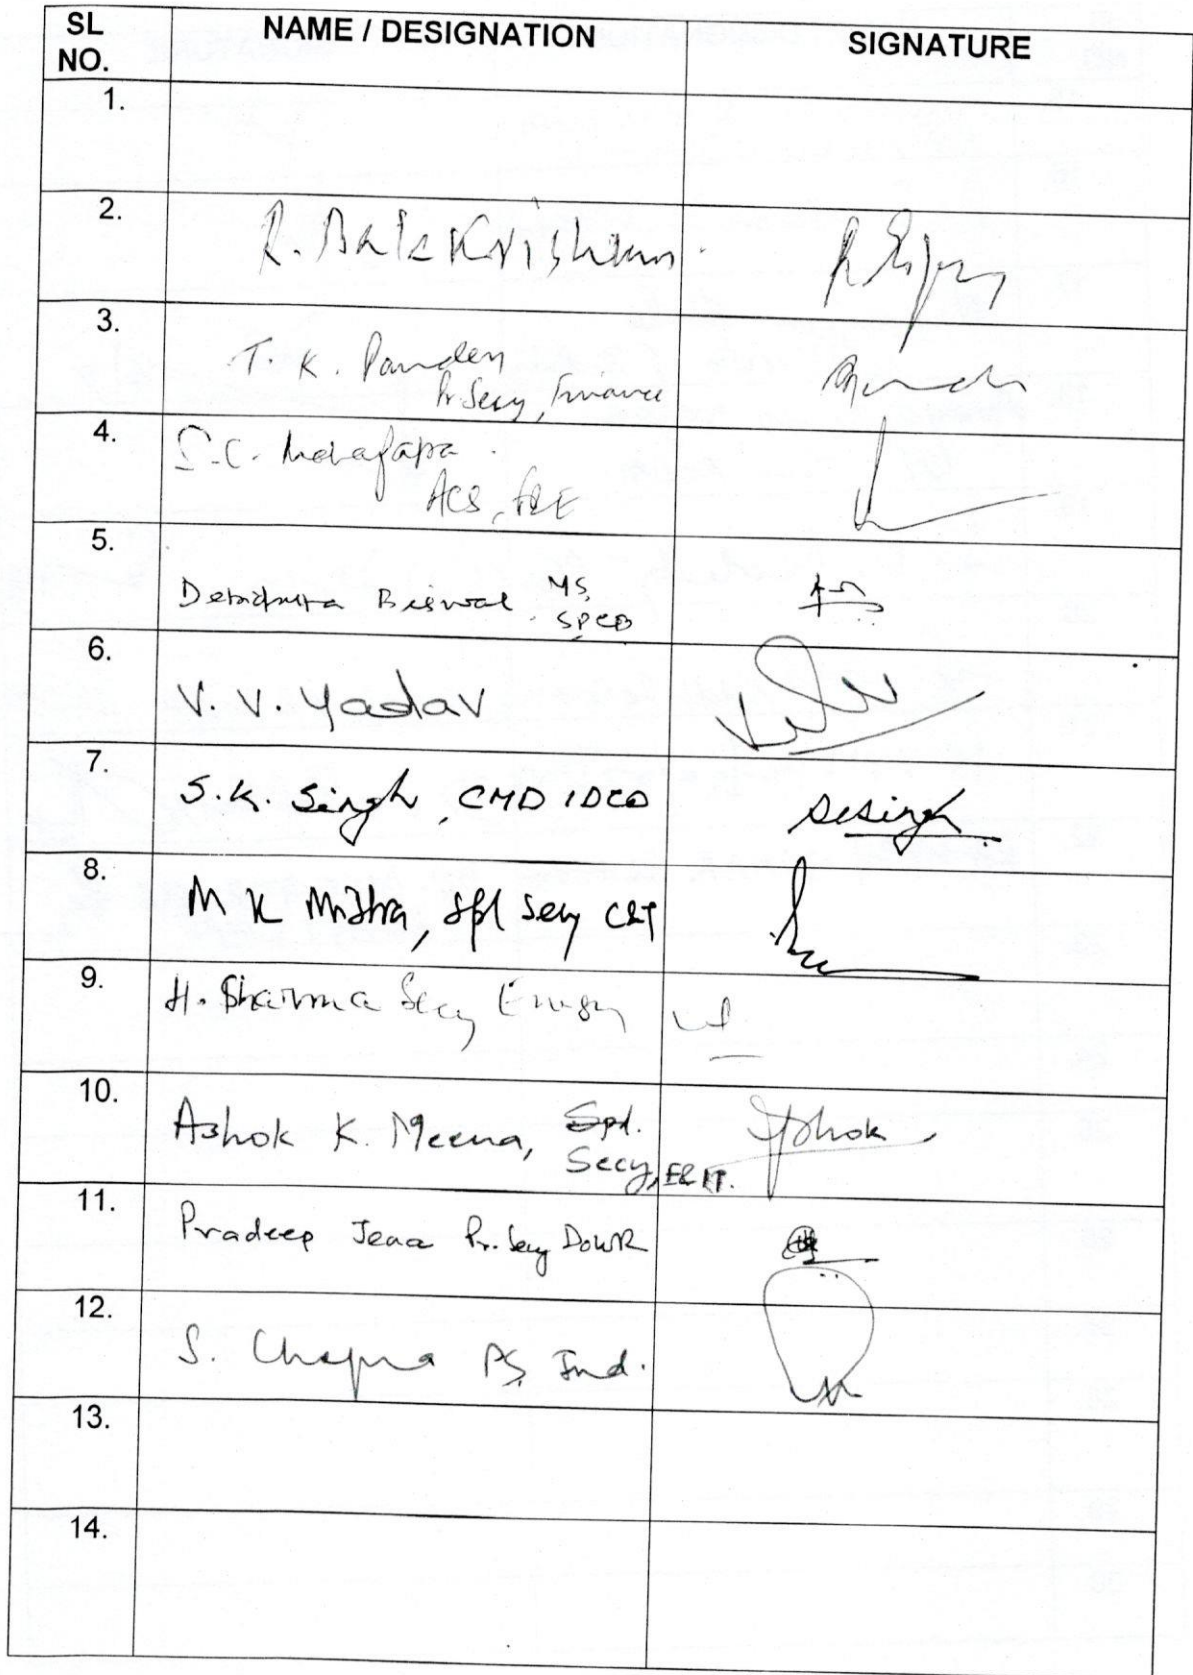 SL NO. NAME / DESIGNATION SIGNATURE
1.
2. R. Balakrishnan.
3. T. K. Pandey
Pr. Secy, Finance
4. S.C. Mahapatra.
ACS, F&E
5. Debidutta Biswal MS,
SPCB
6. V. V. Yadav
7. S.K. Singh, CMD IDCO SKSingh
8. M K Mishra, Spl Secy C&T
9. H. Sharma Secy Energy
10. Ashok K. Meena, Spl. Ashok
Secy, E&IT.
11. Pradeep Jena Pr. Secy DoWR
12. S. Chopra PS, Ind.
13.
14.